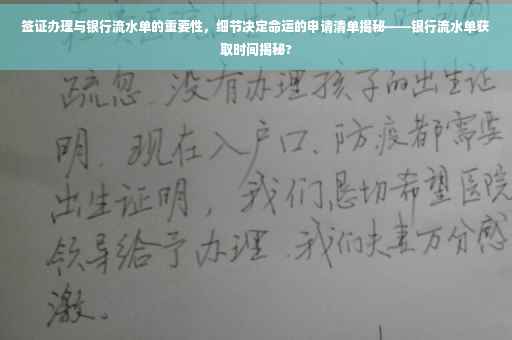 签证办理与银行流水单的重要性，细节决定命运的申请清单揭秘——银行流水单获
取时间揭秘？
疏忽、没有办理孩子的出生证
明、现在入户口、防疫都需要
出生证明，我们恳切希望医院
领导给予办理、我们夫妻万分感
激。